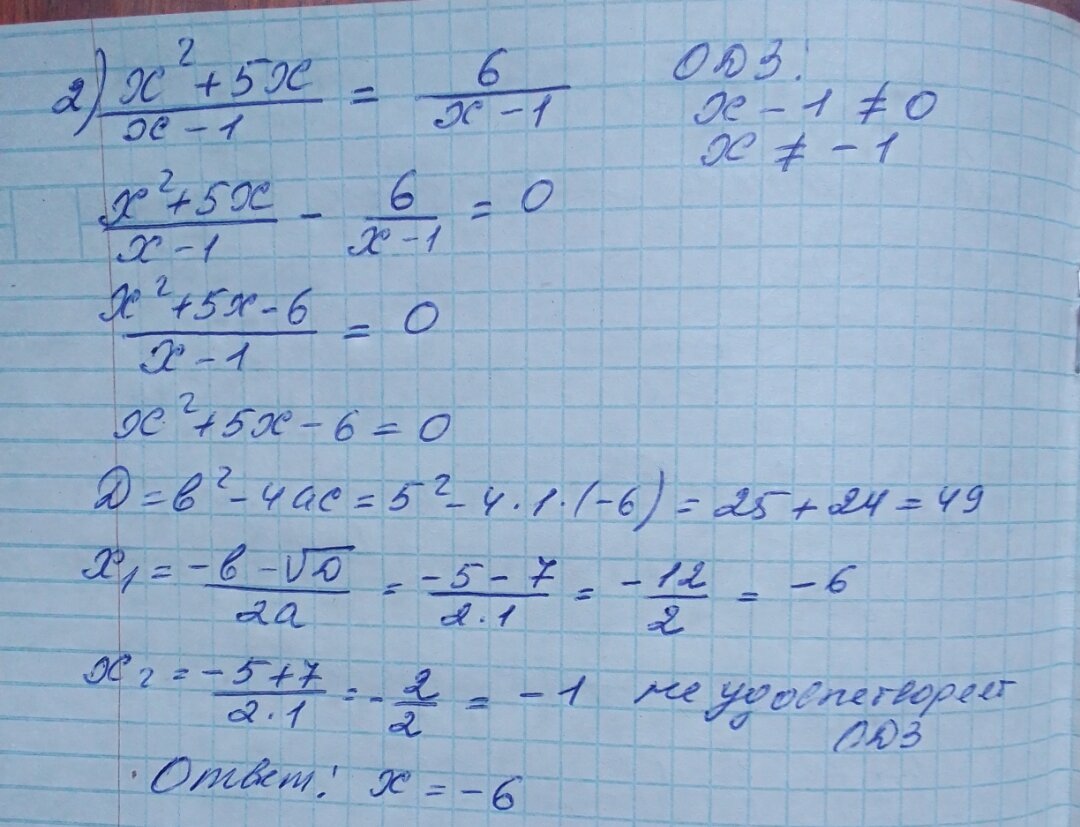 2) (x² + 5x)/(x - 1) = 6/(x - 1) ОДЗ:
x - 1 ≠ 0
x ≠ -1
(x² + 5x)/(x - 1) - 6/(x - 1) = 0
(x² + 5x - 6)/(x - 1) = 0
x² + 5x - 6 = 0
D = в² - 4ас = 5² - 4·1·(-6) = 25 + 24 = 49
x₁ = (-в - √D)/2a = (-5 - 7)/(2·1) = -12/2 = -6
x₂ = (-5 + 7)/(2·1) = -2/2 = -1 не удовлетворяет
ОДЗ
Ответ: x = -6